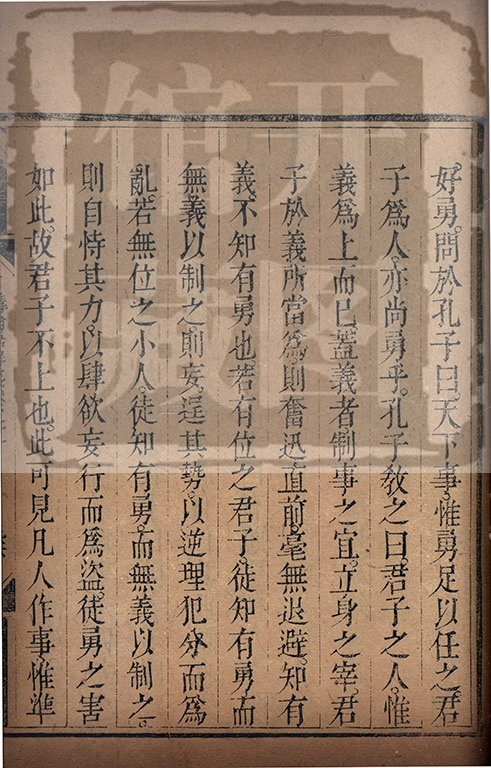 好勇。問於孔子曰。天下事。惟勇足以任之。君
子爲人。亦尚勇乎。孔子教之曰。君子之人。惟
義爲上而已。蓋義者制事之宜。立身之宰。君
子於義所當爲。則奮迅直前。毫無退避。知有
義。不知有勇也。若有位之君子。徒知有勇而
無義以制之。則妄逞其勢。以逆理犯分而爲
亂。若無位之小人。徒知有勇。而無義以制之。
則自恃其力。以肆欲妄行而爲盜。徒勇之害
如此。故君子不上也。此可見凡人作事惟準